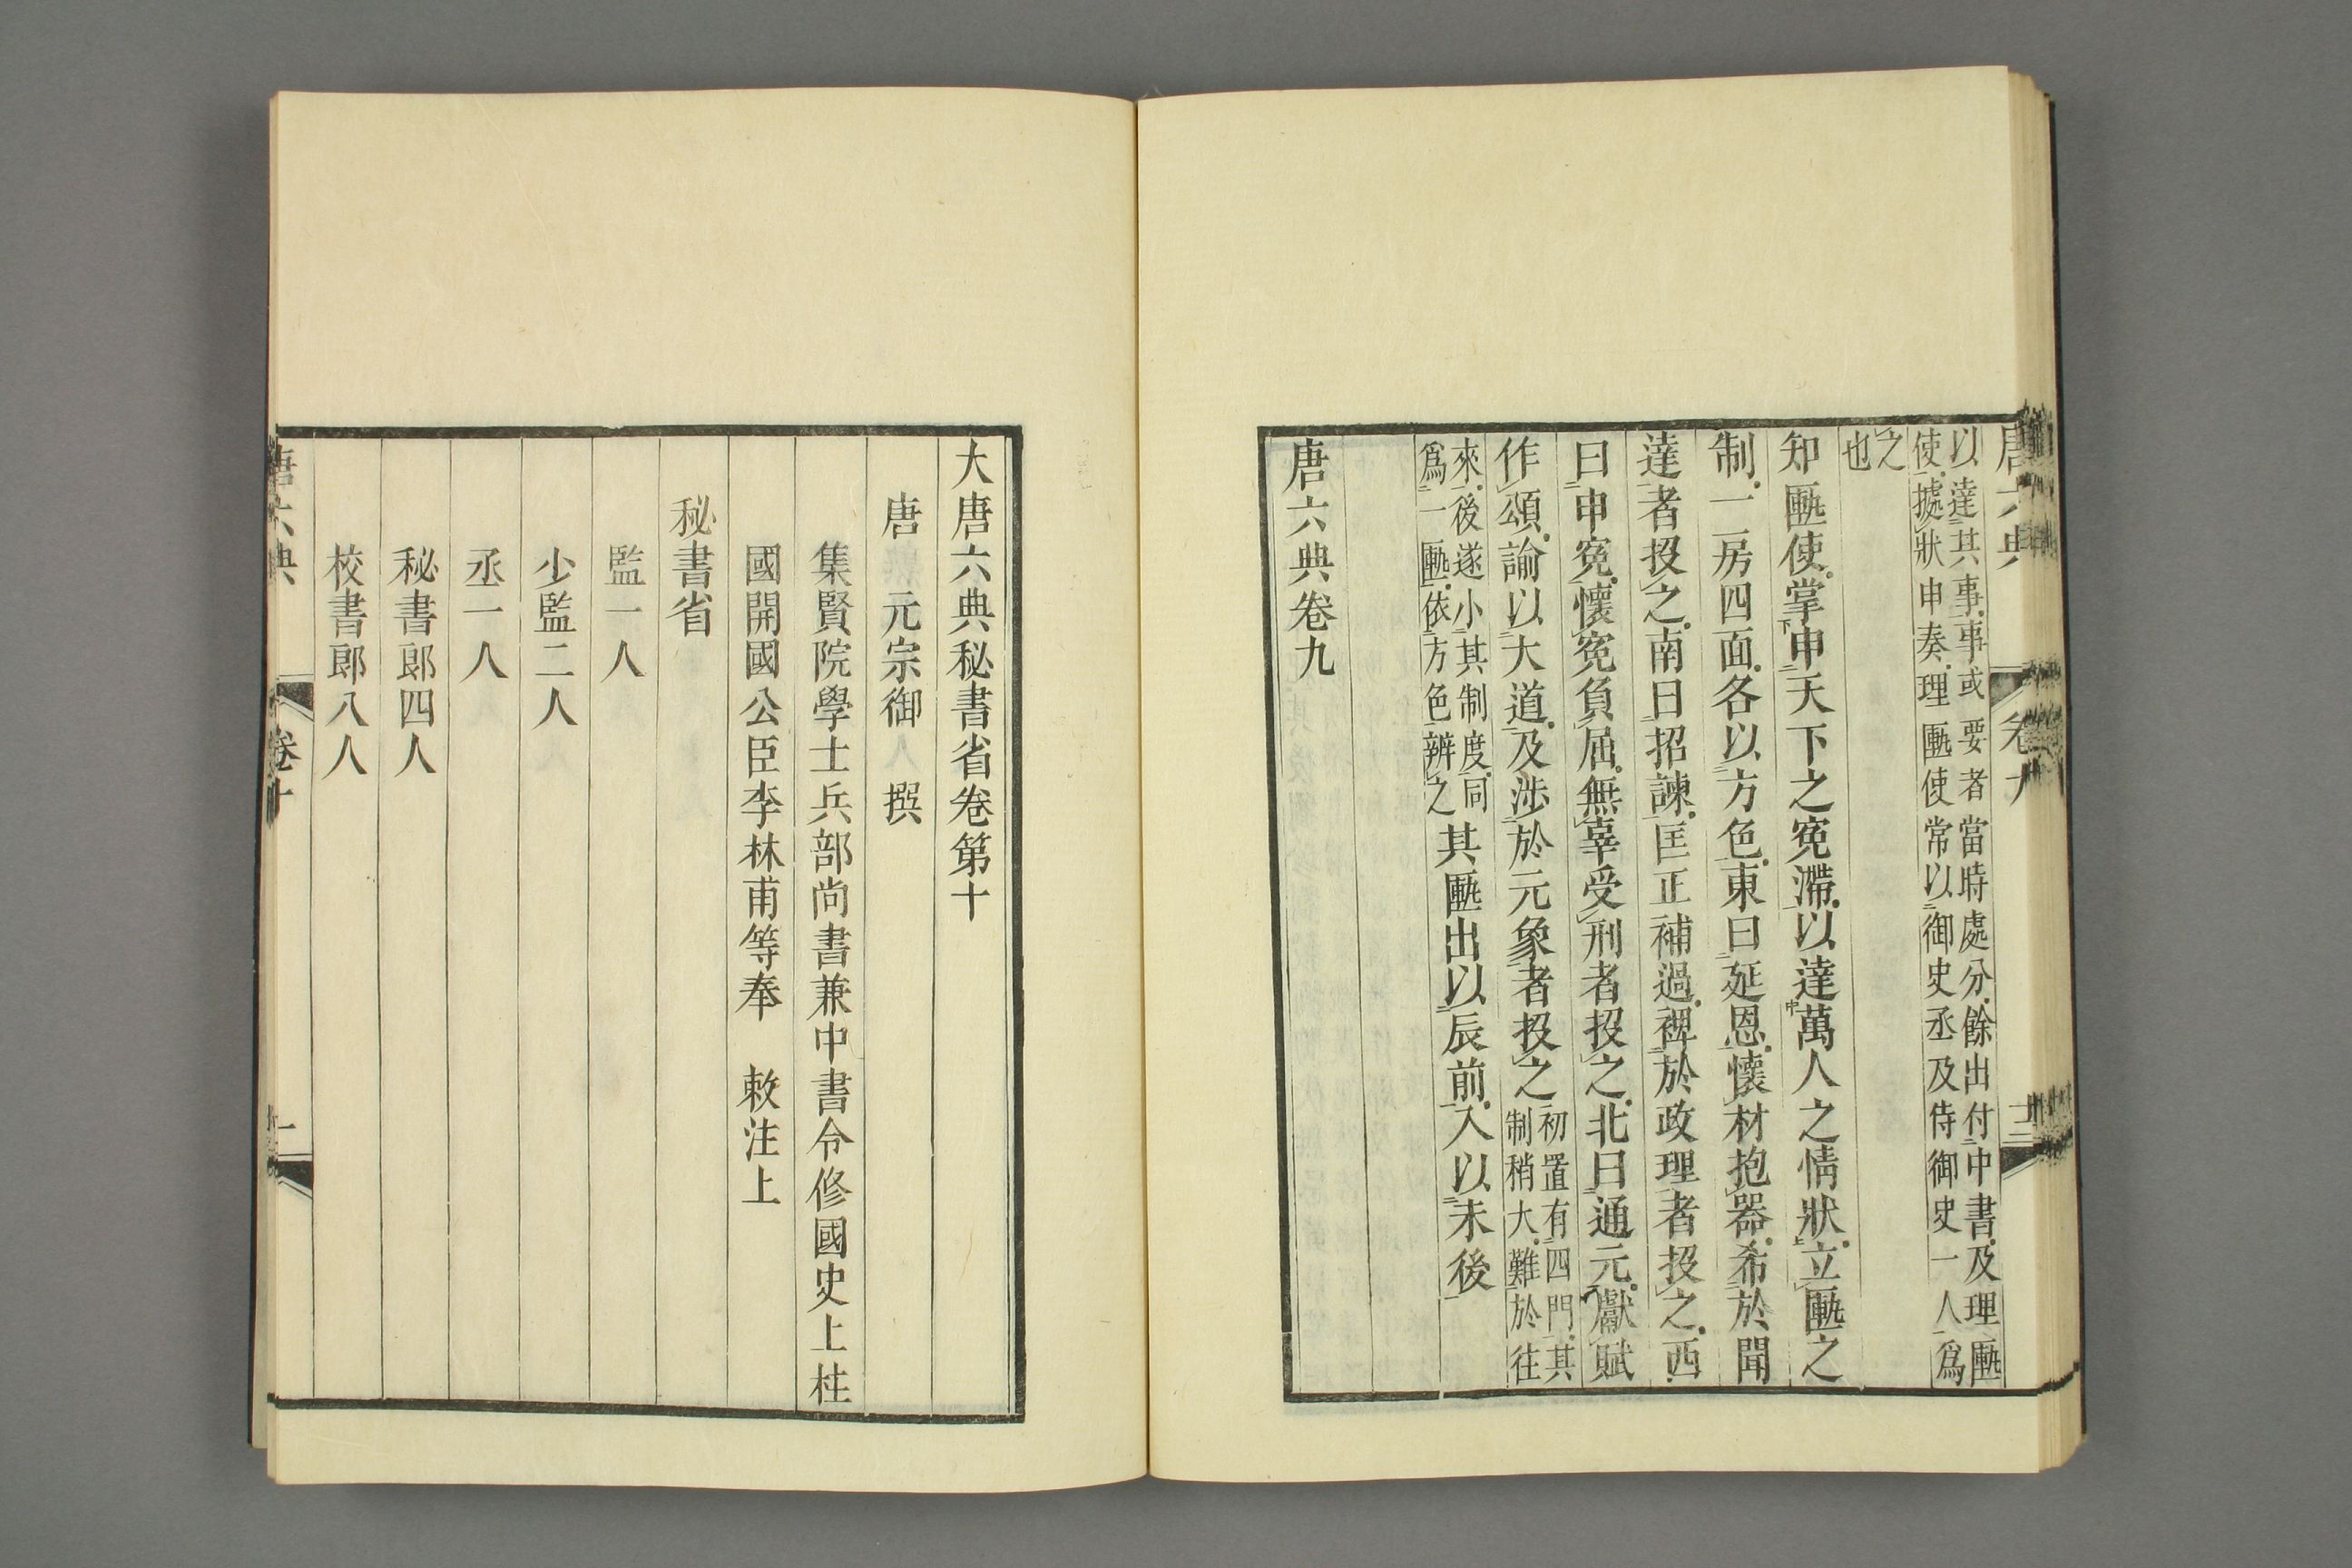 唐六典 卷九
以達其事事或要者當時處分餘出付中書及理匭
使據狀申奏理匭使常以御史丞及侍御史一人爲
之
也
知匭使掌申天下之寃滯以達萬人之情狀立匭之
制一房四面各以方色東曰延恩懷材抱器希於聞
達者投之南曰招諫匡正補過裨於政理者投之西
曰申寃懷寃負屈無辜受刑者投之北曰通元獻賦
作頌諭以大道及涉於元象者投之
初置有四門其
制稍大難於往
來後遂小其制度同
爲一匭依方色辨之
其匭出以辰前入以未後
唐六典卷九
大唐六典秘書省卷第十
唐 元宗御 撰
集賢院學士兵部尚書兼中書令修國史上柱
國開國公臣李林甫等奉 敕注上
秘書省
監一人
少監二人
丞一人
秘書郎四人
校書郎八人
唐六典 卷十 一